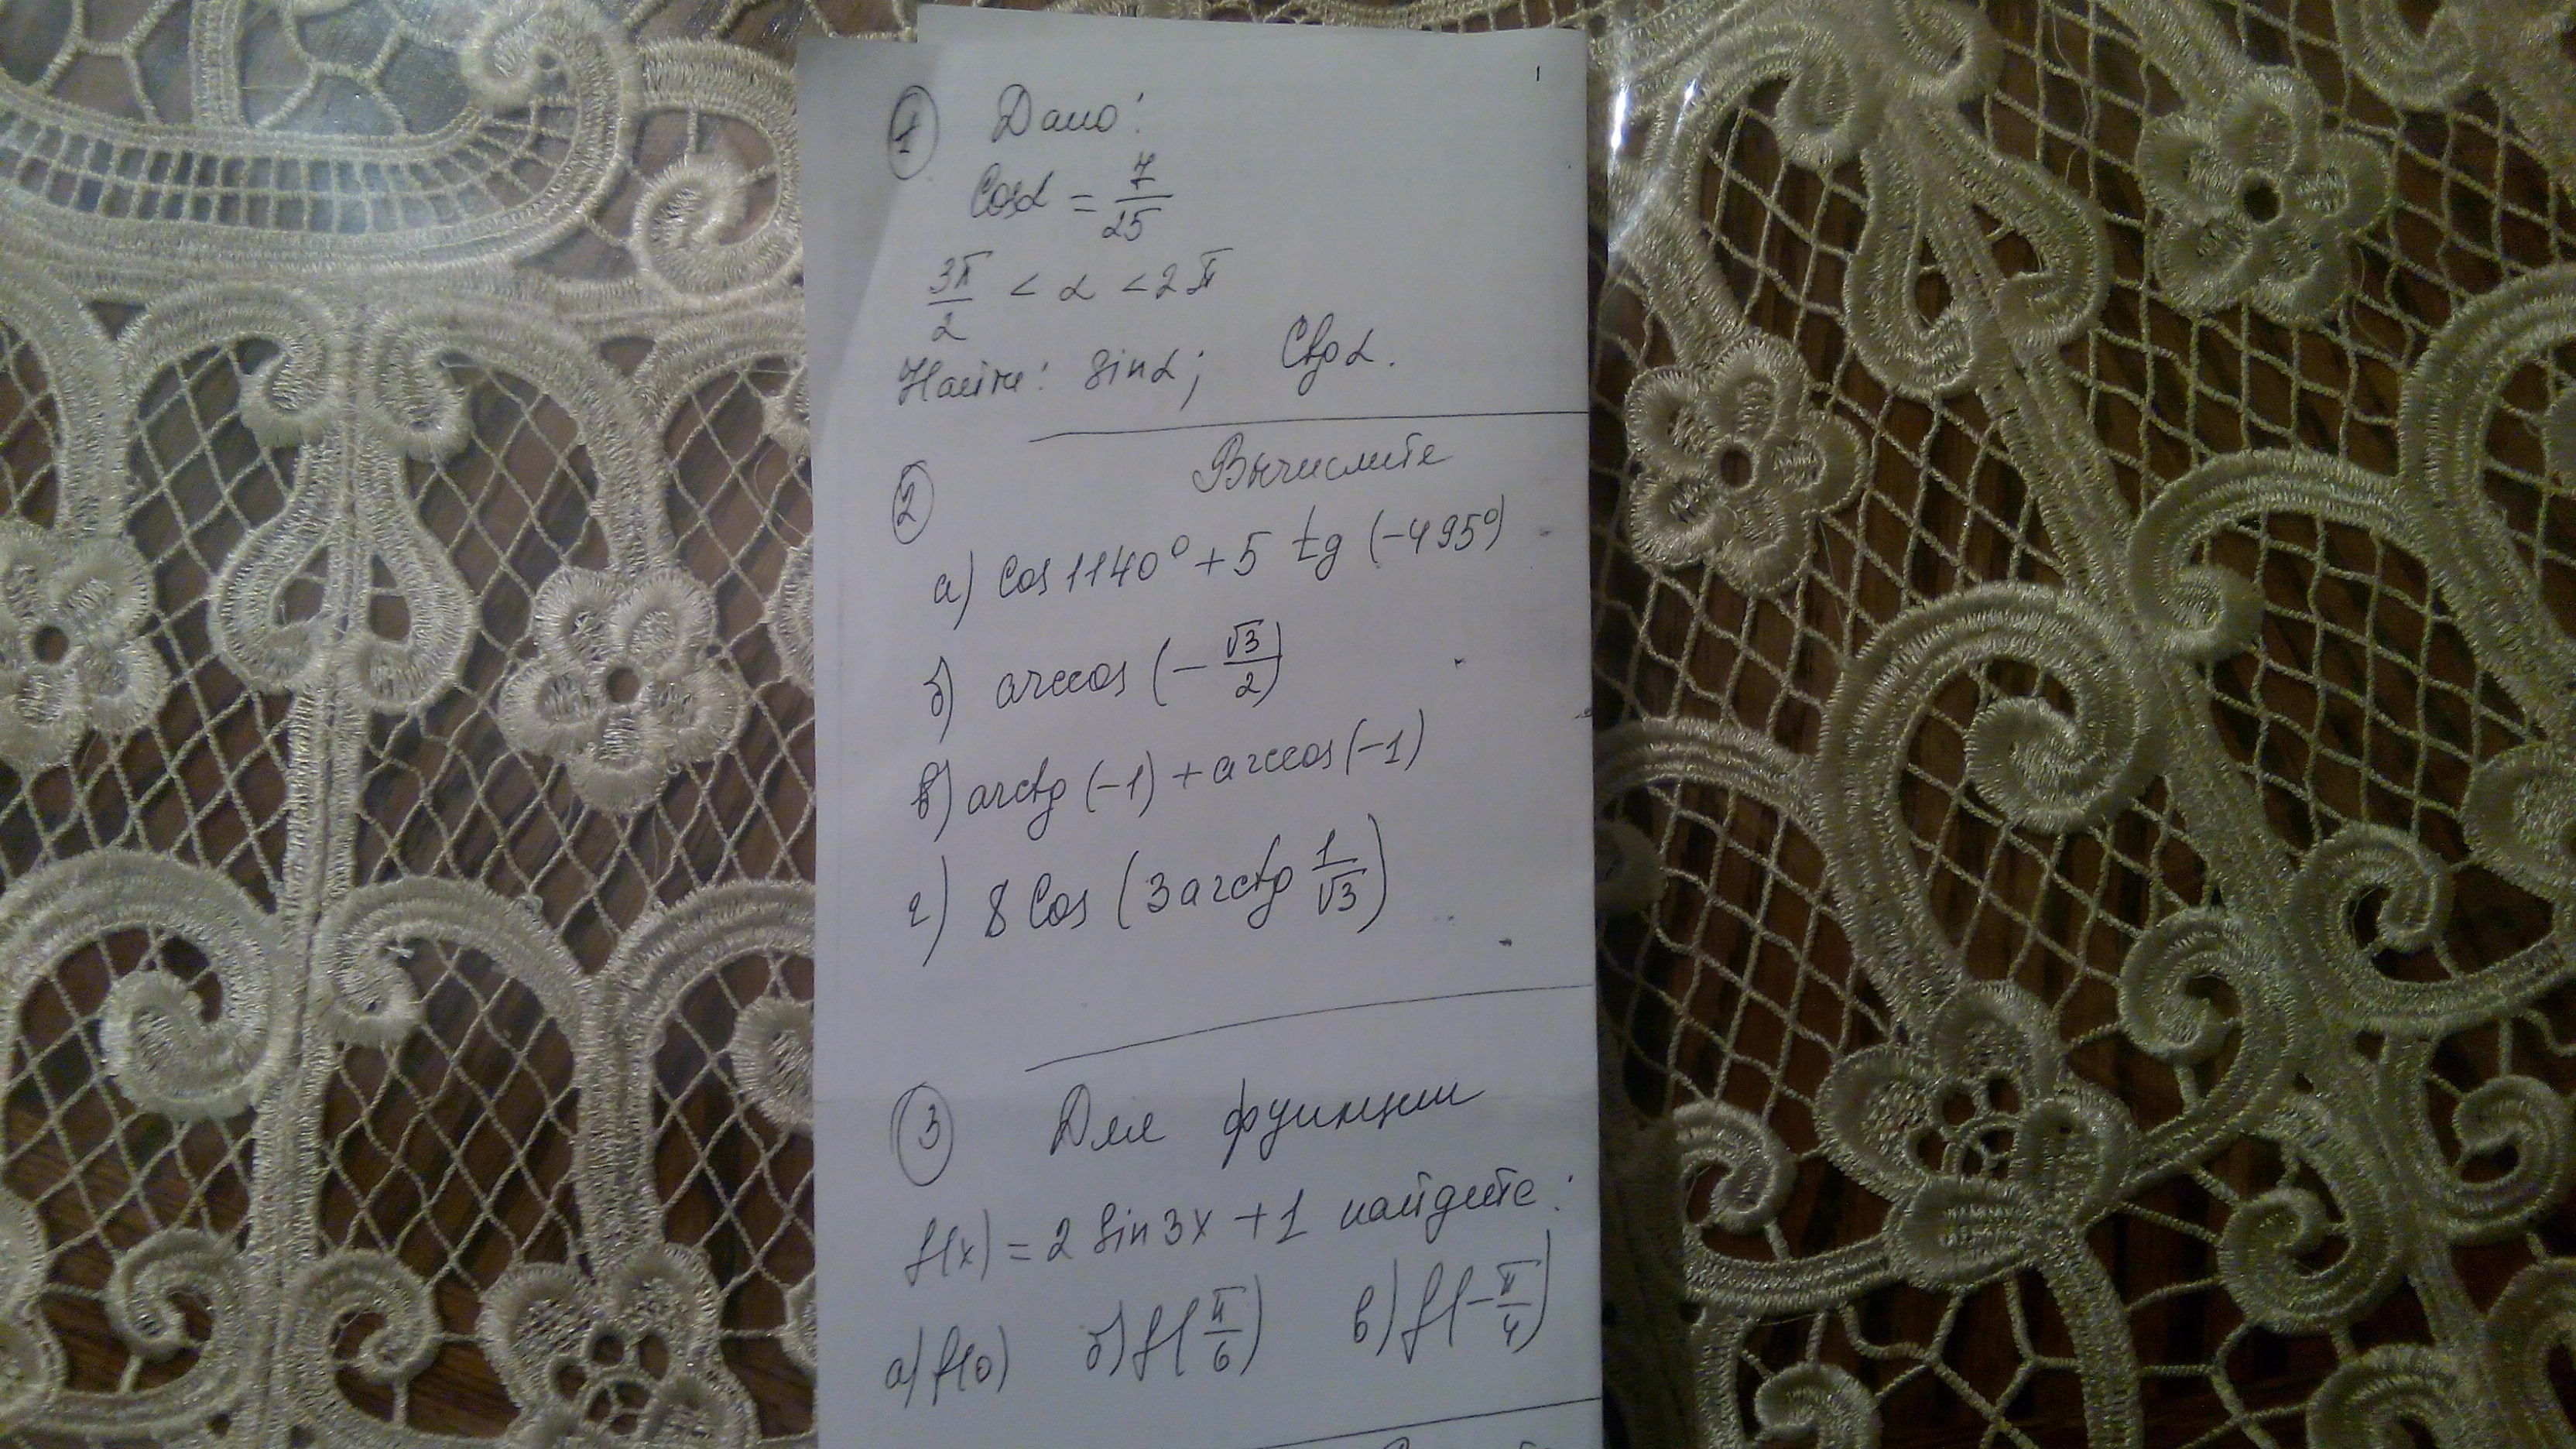 1 Дано:
Cosα = 7/25
3π/2 < α < 2π
Найти: sinα; Ctgα.
2 Вычислите
а) Cos 1140° + 5 tg (-495°)
б) arccos (-√3/2)
в) arctg (-1) + arccos (-1)
г) 8 Cos (3 arctg 1/√3)
3 Для функции
f(x) = 2 Sin 3x + 1 найдите:
а) f(0) б) f(π/6) в) f(-π/4)